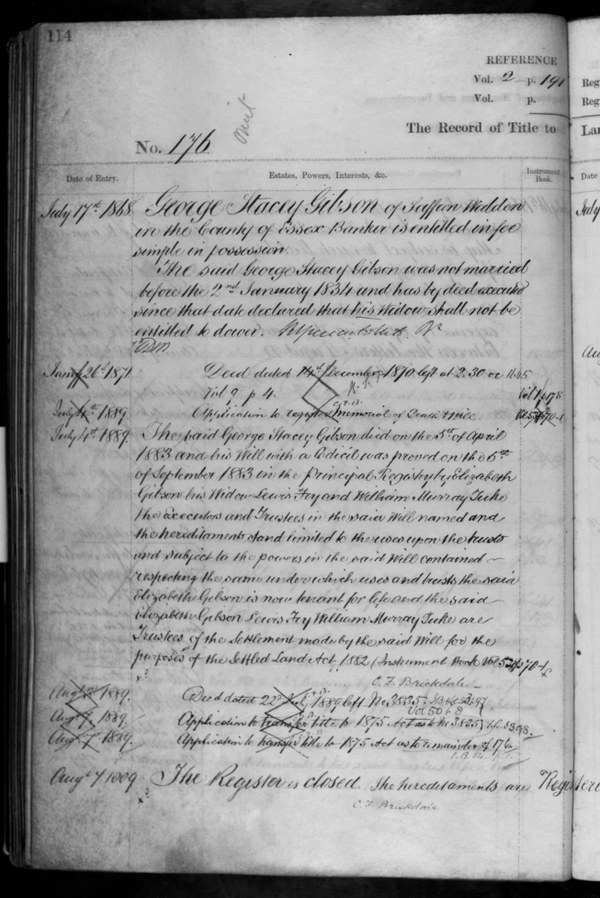 114
REFERENCE
Vol. 2 p. 191
Vol. p.
The Record of Title to
No. 176
Date of Entry.
Estates, Powers, Interests, &c.
Instrument Book.
July 17th 1868 George Stacey Gibson of Saffron Walden
in the County of Essex Banker is entitled in fee
simple in possession
The said George Stacey Gibson was not married
before the 2nd January 1834 and has by deed executed
since that date declared that his Widow shall not be
entitled to dower.
26th 1871 Deed dated 14th December 1870 left at 2.30
Vol 9 p 4.
July 4th 1889. Application to register memorial of Death & Will.
July 4th 1889. The said George Stacey Gibson died on the 5th of April
1883 and his Will with a Codicil was proved on the 6th
of September 1883 in the Principal Registry by Elizabeth
Gibson his Widow Lewis Fry and William Murray Tuke
the executors and Trustees in the said Will named and
the hereditaments stand limited to the uses upon the trusts
and subject to the powers in the said Will contained
respecting the same under which uses and trusts the said
Elizabeth Gibson is now tenant for life and the said
Elizabeth Gibson Lewis Fry William Murray Tuke are
Trustees of the Settlement made by the said Will for the
purposes of the Settled Land Act 1882 (Instrument Book Vol 52 p 70
C. F. Brickdale
1889. Deed dated 22nd July 1889 left
Augt 7th 1889. Application to transfer title to 1875 Act as to
Augt 7th 1889. Application to transfer title to 1875 Act as to remainder of 176
Augt 7 1889 The Register is closed. The hereditaments are Register
C F Brickdale
Reg
Reg
Lan
Date
July